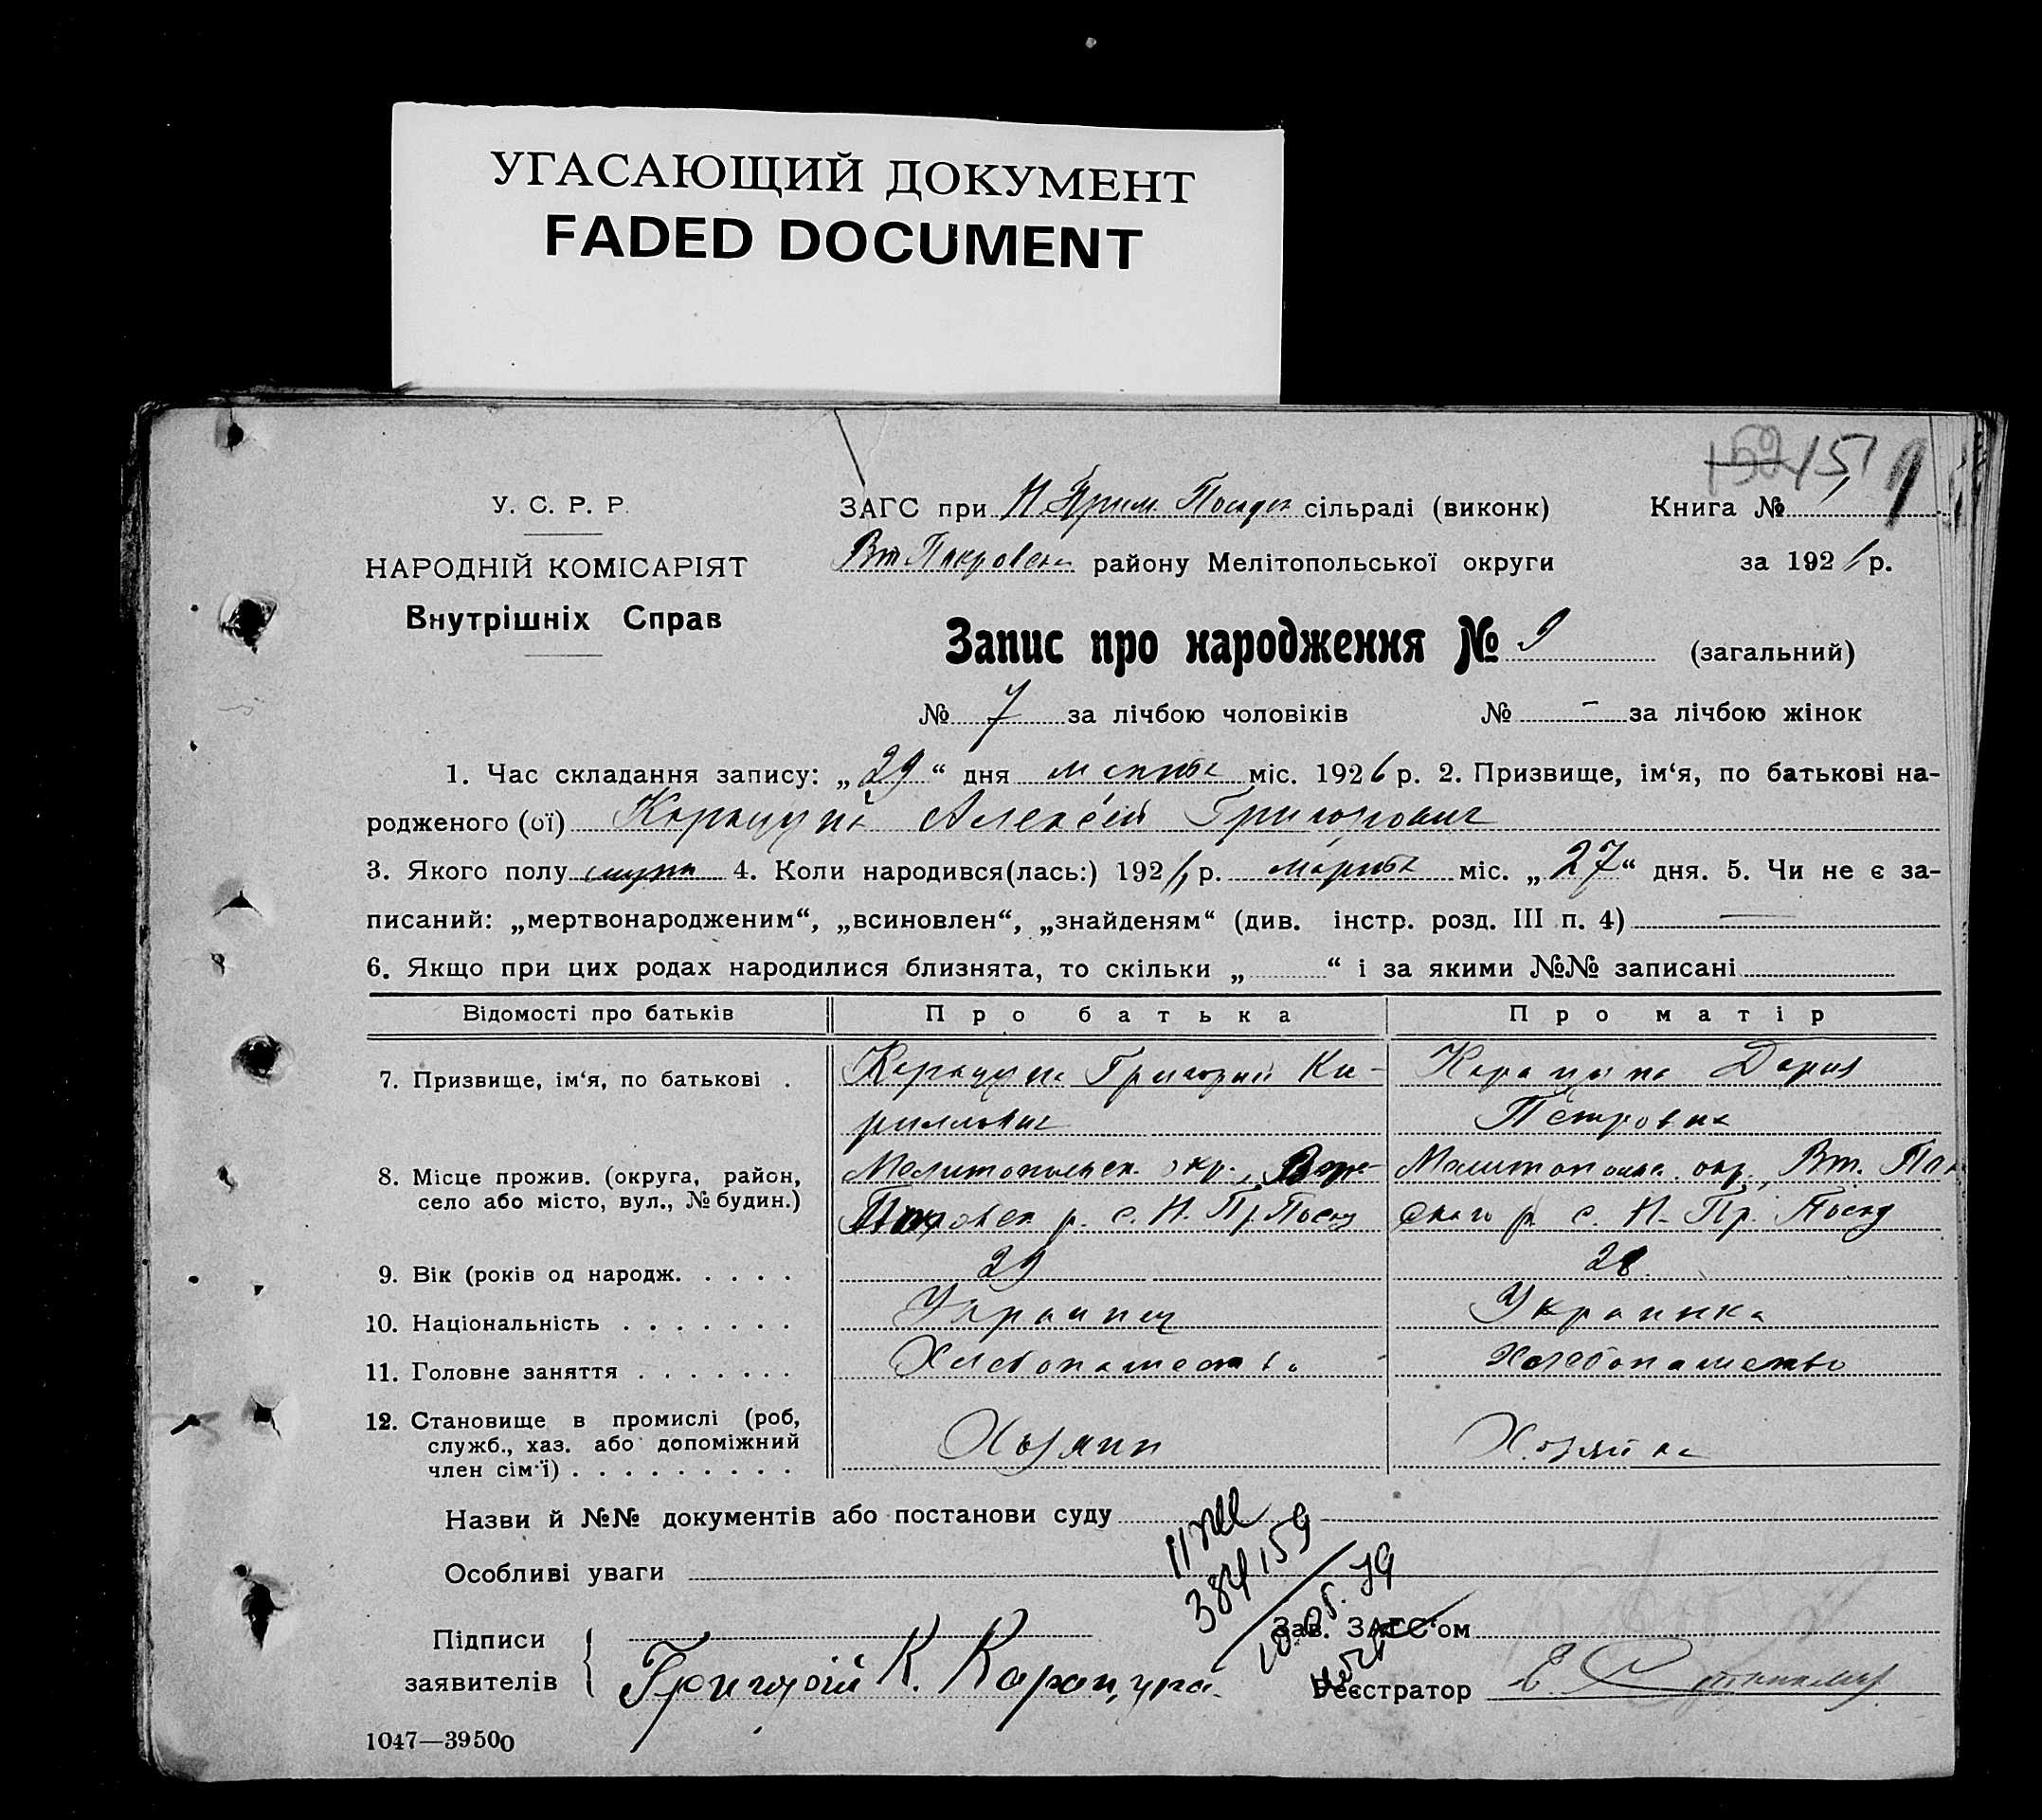 УГАСАЮЩИЙ ДОКУМЕНТ
FADED DOCUMENT
У. С. Р. Р.
НАРОДНІЙ КОМІСАРІЯТ
Внутрішніх Справ
ЗАГС при сільраді (виконк)
району Мелітопольської округи
Книга №
за 1926 р.
Запис про народження № 9 (загальний)
№ 7 за лічбою чоловіків № - за лічбою жінок
1. Час складання запису: „29“ дня марта міс. 1926 р. 2. Призвище, ім‘я, по батькові на-
родженого (ої) Карацупа Алексей Григорович
3. Якого полу 4. Коли народився(лась:) 192 р. марта міс. „27“ дня. 5. Чи не є за-
писаний: „мертвонародженим“, „всиновлен“, „знайденям“ (див. інстр. розд. III п. 4)
6. Якщо при цих родах народилися близнята, то скільки „ “ і за якими №№ записані
Відомості про батьків Про батька Про матір
7. Призвище, ім‘я, по батькові . Карацупа Григорий Ки- Карацупа Дария
риллович Петровна
8. Місце прожив. (округа, район, Мелитопольск. окр., Мелитопольс. окр., Вт. Пок
село або місто, вул., № будин.) р. с. Н. Пр. Посад р с. Н. Пр. Посад
9. Вік (років од народж. . . . . 29 28
10. Національність . . . . . . . Украинец Украинка
11. Головне заняття . . . . . . . Хлебопашество Хлебопашество
12. Становище в промислі (роб, Хозяин Хозяйка
служб., хаз. або допоміжний
член сім‘ї) . . . . . . . . .
Назви й №№ документів або постанови суду
Особливі уваги
384159
Підписи
заявителів
Григорій К. Карацупа
Зав. ЗАГС‘ом
Реєстратор
1047—39500